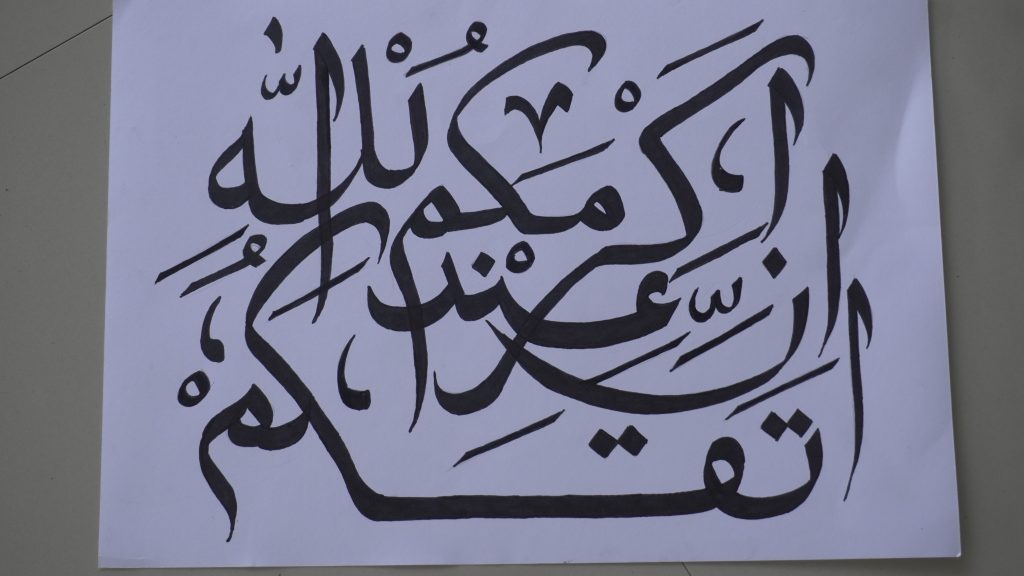 اِنَّ اَكْرَمَكُمْ عِنْدَ اللّٰهِ اَتْقٰكُمْ